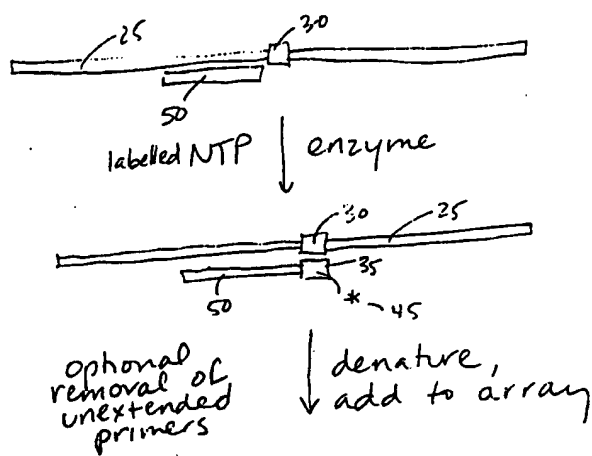 25 30
50
labelled NTP enzyme
30 25
35
50 * 45
optional
removal of
unextended
primers
denature,
add to array